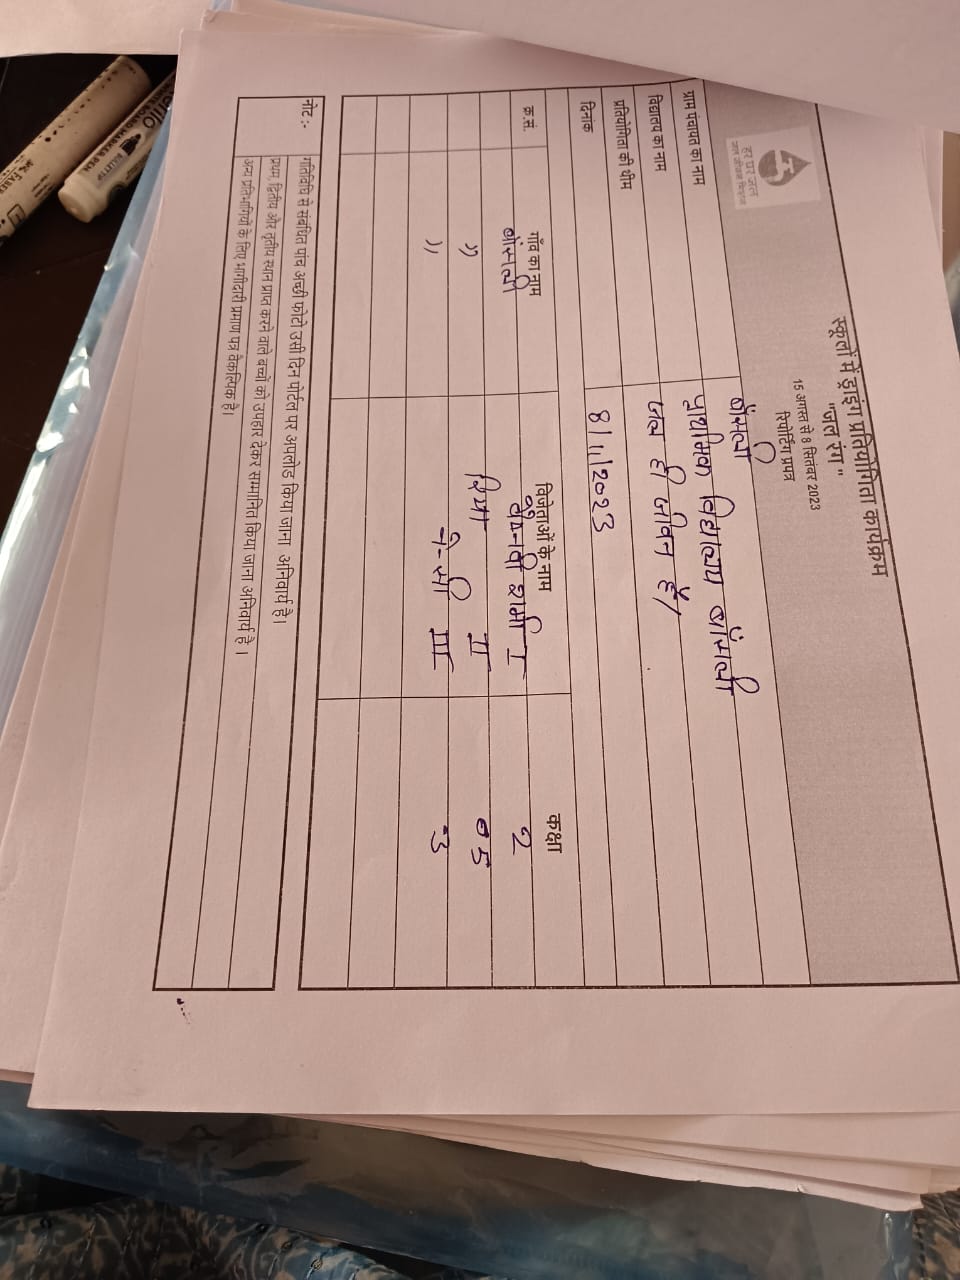 स्कूलों में ड्राइंग प्रतियोगिता कार्यक्रम
"जल रंग"
15 अगस्त से 8 सितंबर 2023
रिपोर्टिंग प्रपत्र
हर घर जल
जल जीवन मिशन
ग्राम पंचायत का नाम
विद्यालय का नाम प्राथमिक विद्यालय
प्रतियोगिता की थीम जल ही जीवन है।
दिनांक 8/11/2023
क.सं. गाँव का नाम विजेताओं के नाम कक्षा
शर्मा I 2
" रिया II 5
" III 3
नोट :- गतिविधि से संबंधित पांच अच्छी फोटो उसी दिन पोर्टल पर अपलोड किया जाना अनिवार्य है।
प्रथम, द्वितीय और तृतीय स्थान प्राप्त करने वाले बच्चों को उपहार देकर सम्मानित किया जाना अनिवार्य है ।
अन्य प्रतिभागियों के लिए भागीदारी प्रमाण पत्र वैकल्पिक है।